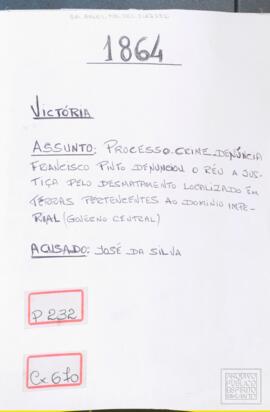 1864
VICTÓRIA
ASSUNTO: PROCESSO-CRIME-DENÚNCIA
FRANCISCO PINTO DENUNCIOU O RÉU A JUS-
TIÇA PELO DESMATAMENTO LOCALIZADO EM
TERRAS PERTENCENTES AO DOMINIO IMPE-
RIAL (GOVERNO CENTRAL)
ACUSADO: JOSÉ DA SILVA
P.232
Cx.670
ARQUIVO
PÚBLICO
ESPÍRITO
SANTO